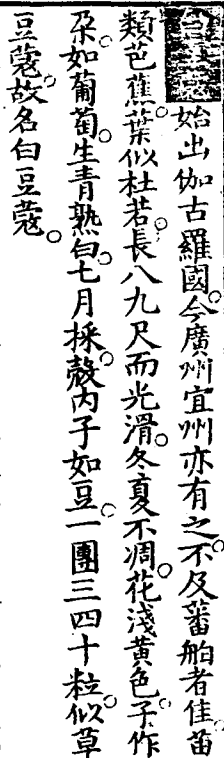 白豆蔲始出伽古羅國。今廣州宜州亦有之。不及蕃舶者佳。苗
類芭蕉。葉似杜若。長八九尺而光滑。冬夏不凋。花淺黃色。子作
朶如葡萄。生青熟白。七月採。殼内子如豆。一團三四十粒。似草
豆蔲。故名白豆蔲。